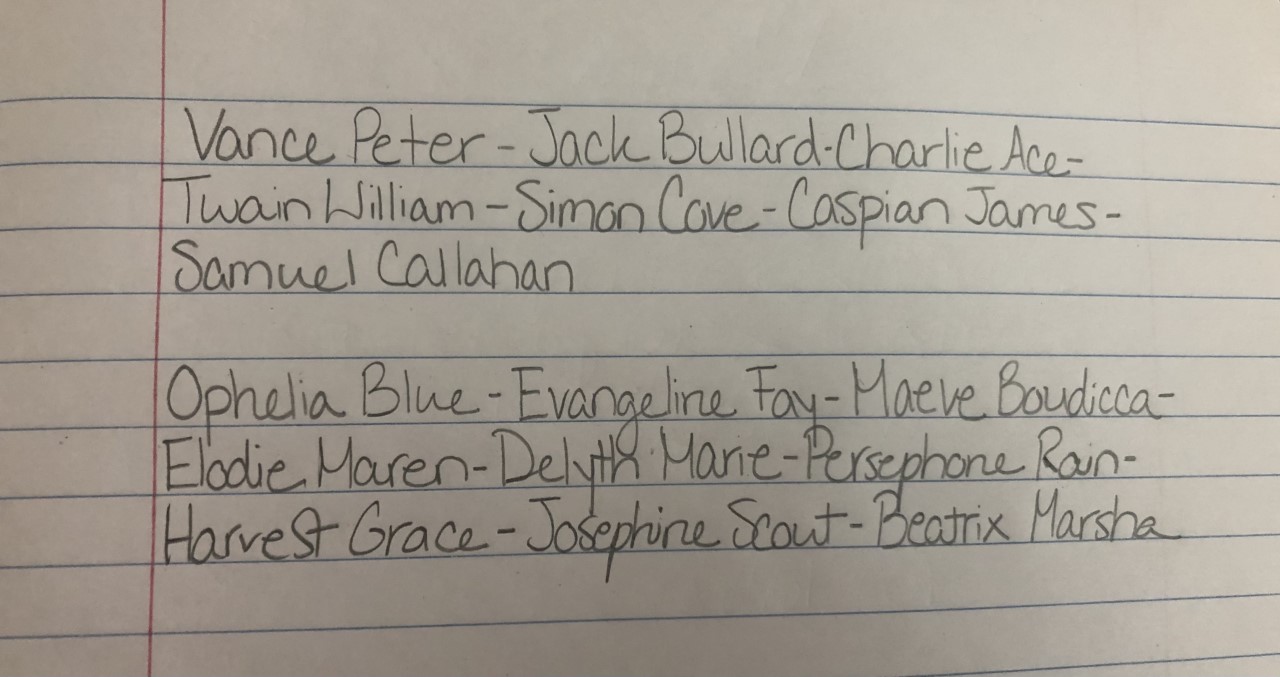 Vance Peter - Jack Bullard - Charlie Ace -
Twain William - Simon Cove - Caspian James -
Samuel Callahan
Ophelia Blue - Evangeline Fay - Maeve Boudicca -
Elodie Maren - Delyth Marie - Persephone Rain -
Harvest Grace - Josephine Scout - Beatrix Marsha